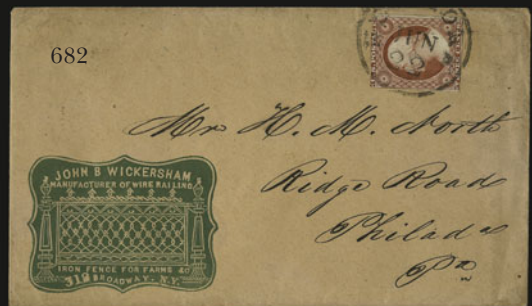 682
JUN
22
Mr H. M. North
Ridge Road
Philad a
Pa
JOHN B WICKERSHAM
MANUFACTURER OF WIRE RAILING
IRON FENCE FOR FARMS &c
312 BROADWAY, N.Y.